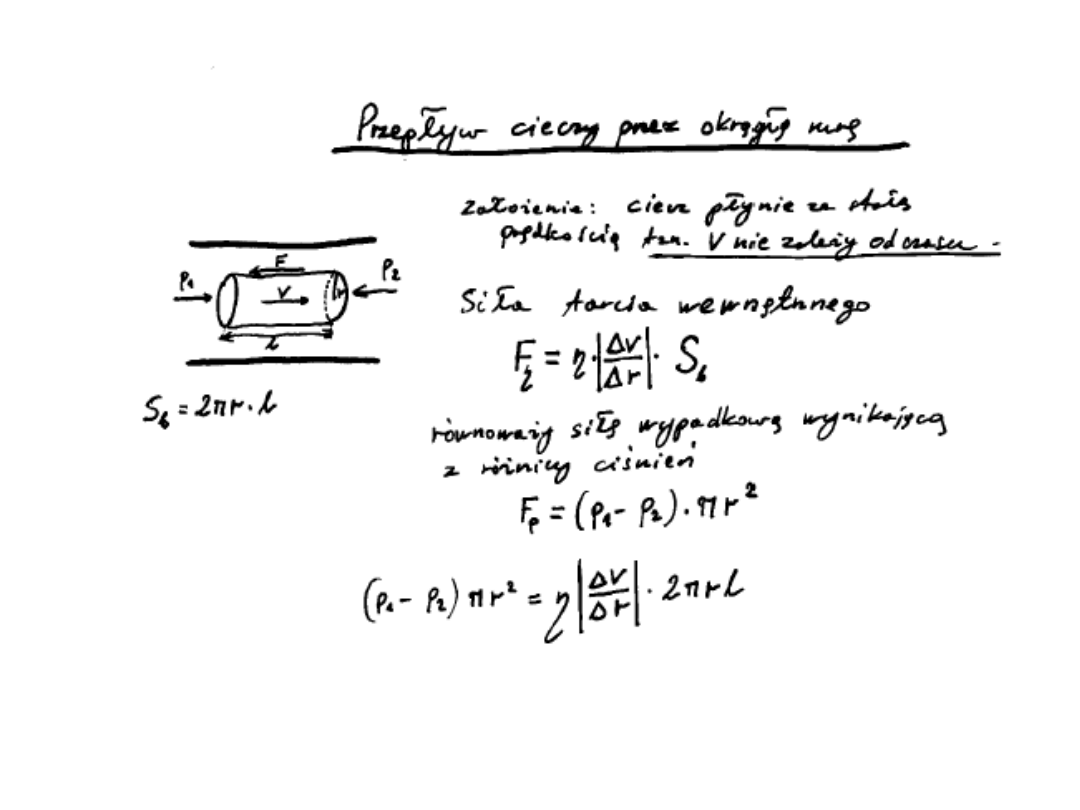 Przepływ cieczy przez okrągłą rurę
Założenie: ciecz płynie ze stałą
prędkością tzn. V nie zależy od czasu.
F
p₁
p₂
V
r
l
Siła tarcia wewnętrznego
F_η = η·|Δv/Δr|· S_b
S_b = 2πr·l
równoważy siłę wypadkową wynikającą
z różnicy ciśnień
F_p = (p₁- p₂)·πr²
(p₁- p₂) πr² = η|Δv/Δr|· 2πrl